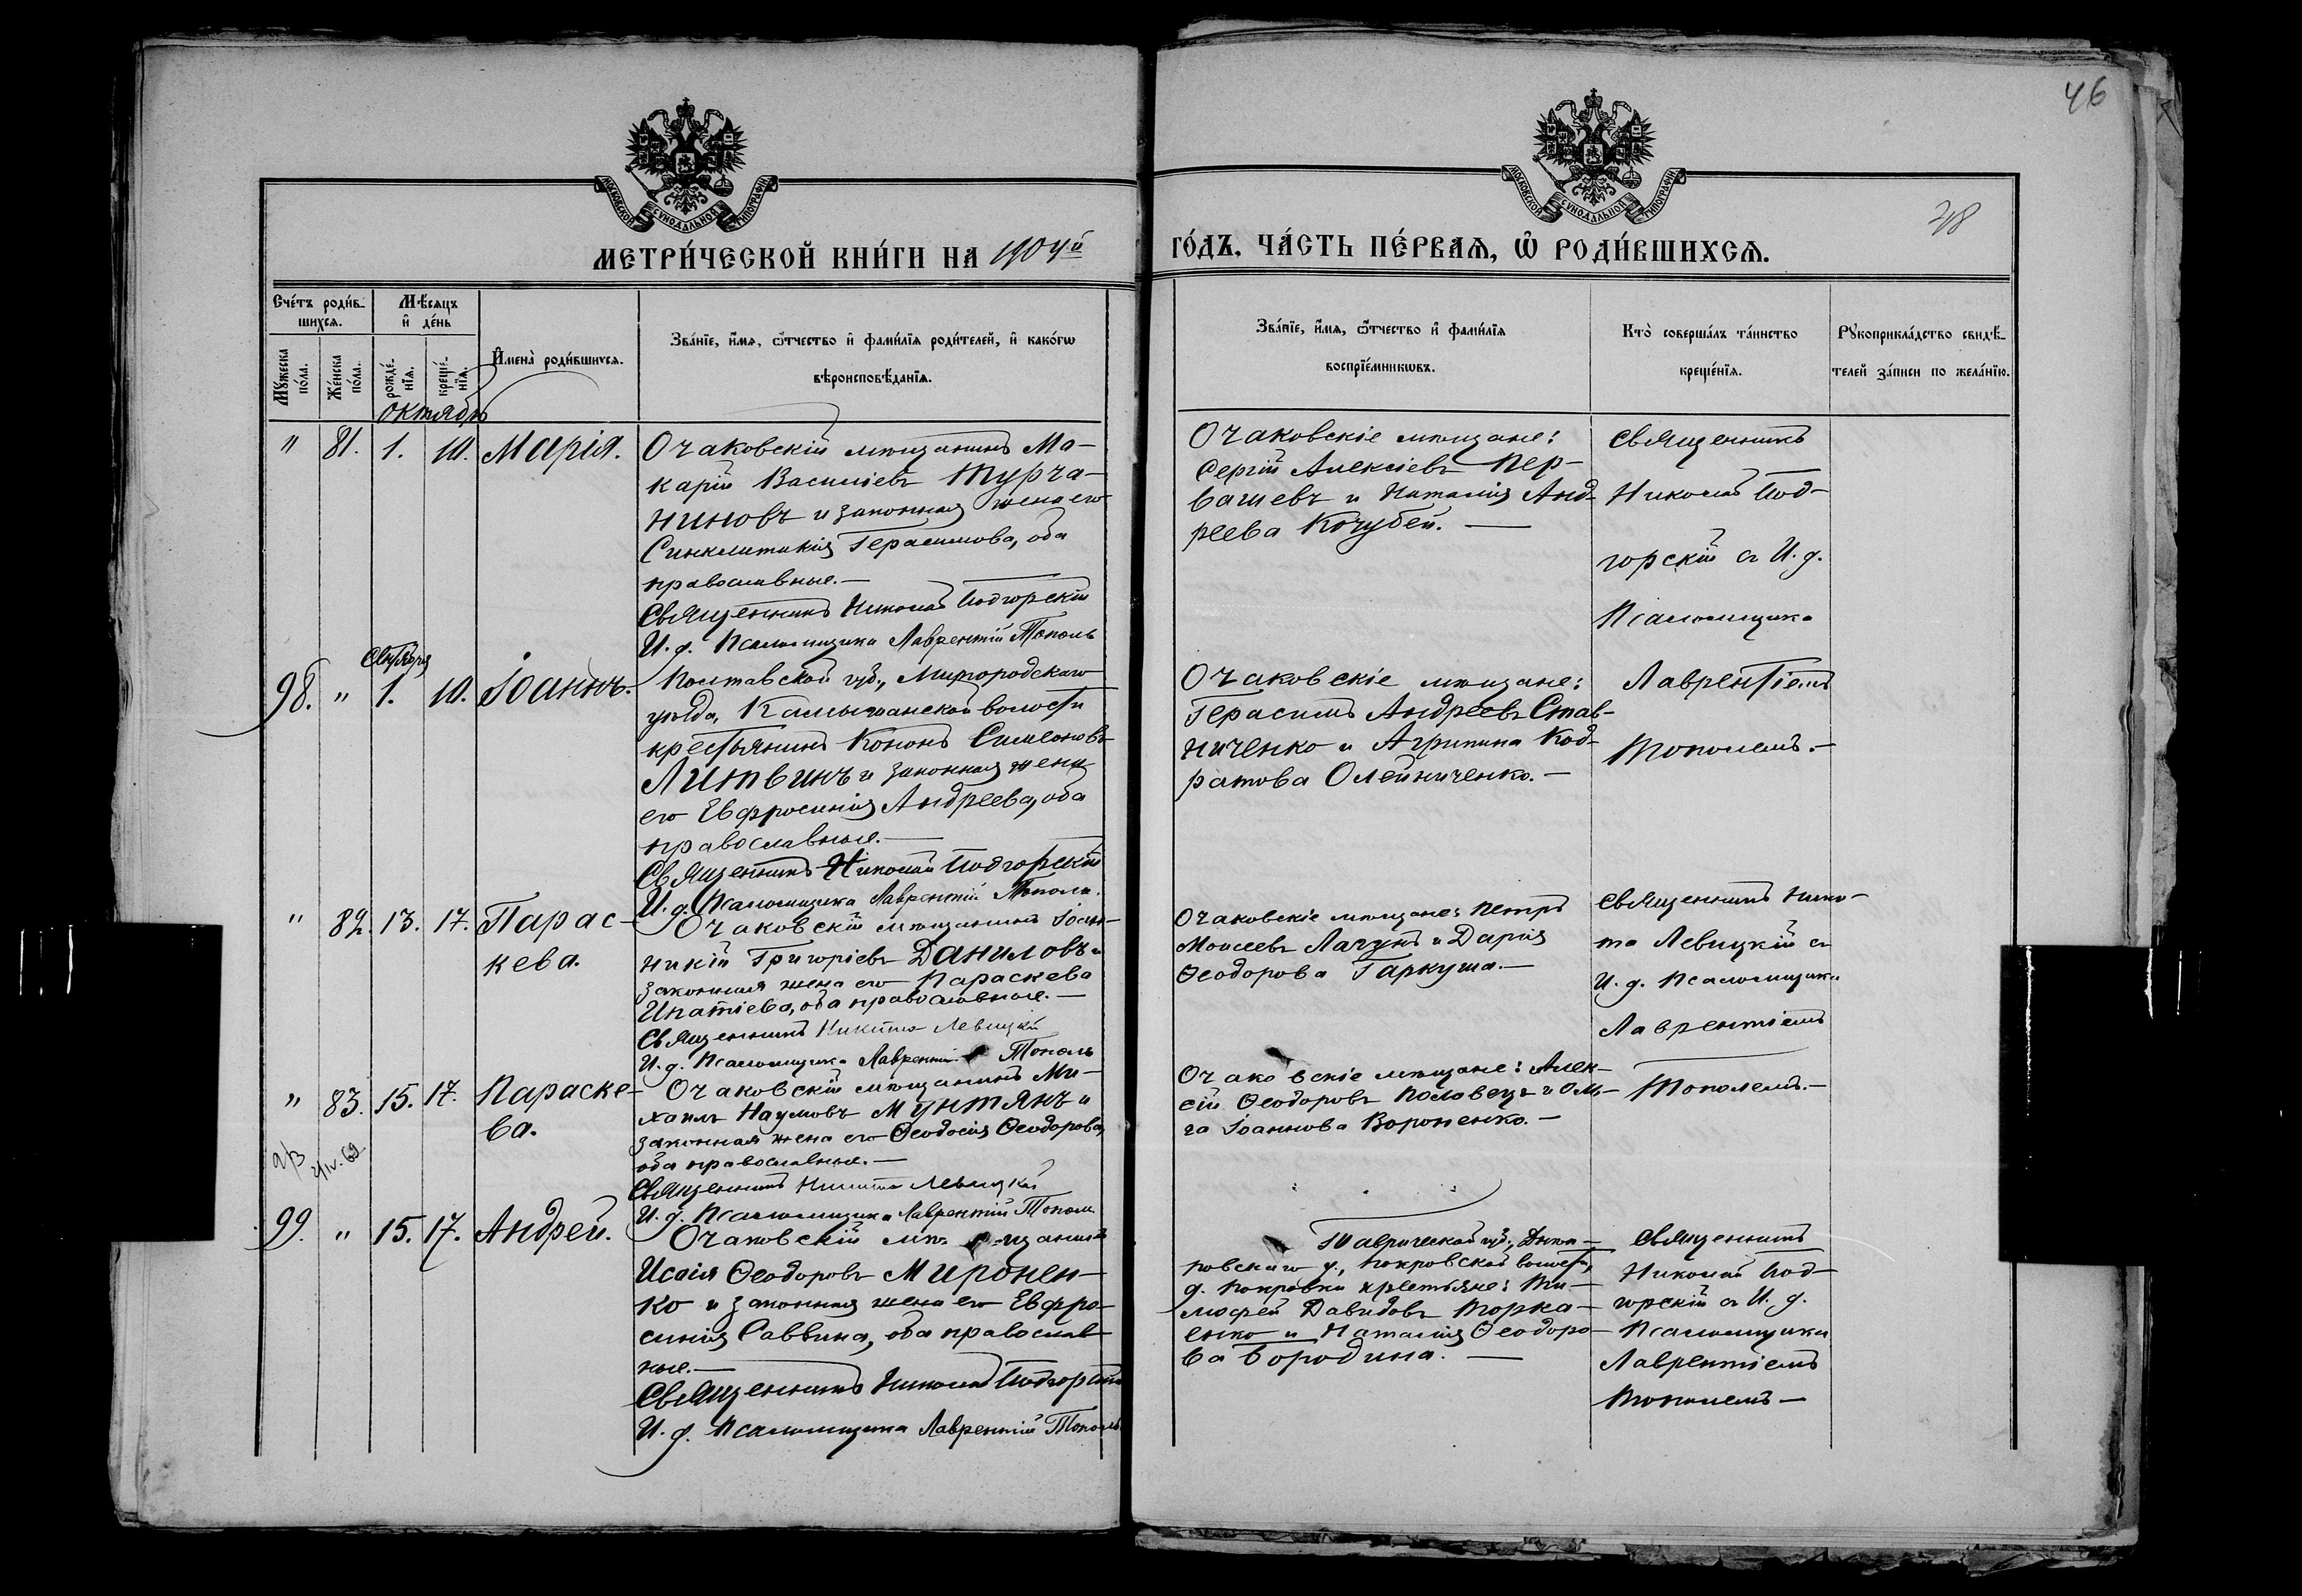 46
28
МОСКОВСКОЙ СѴНОДАЛЬНОЙ ТИПОГРАФІИ
МОСКОВСКОЙ СѴНОДАЛЬНОЙ ТИПОГРАФІИ
МЕТРИ́ЧЕСКОЙ КНИ́ГИ НА 1904й
ГО́ДЪ, ЧА́СТЬ ПЕ́РВАѦ, Ѽ РОДИ́ВШИХСѦ.
Сче́тъ роди́в-
шихсѧ.
Мꙋ́жеска по́ла.
Же́нска по́ла.
Мѣ́сѧцъ
и҆ де́нь
рожде́-
нїѧ.
креще́-
нїѧ.
И҆мена̀ роди́вшихсѧ.
Зва́нїе, и҆́мѧ, ѻ҆́тчество и҆ фами́лїѧ роди́телей, и҆ како́гѡ
вѣроисповѣ́данїѧ.
Зва́нїе, и҆́мѧ, ѻ҆́тчество и҆ фами́лїѧ
воспрїе́мникѡвъ.
Кто̀ соверша́лъ та́инство
креще́нїѧ.
Рꙋкоприкла́дство свидѣ́-
телей за́писи по жела́нїю.
Октябрь
" 81. 1. 10. Марія.
Очаковскій мѣщанинъ Ма-
карій Василіевъ Турча-
ниновъ и законная жена его
Синклитикія Герасимова, оба
православные.—
Священникъ Николай Подгорскій
И. д. Псаломщика Лаврентій Тополь
Очаковскіе мѣщане:
Сергій Алексіевъ Пер-
вашевъ и Наталія Анд-
реева Кочубей.—
Священникъ
Николай Под-
горскій съ И. д.
Псаломщика
Лаврентіемъ
Тополемъ.—
Сентября
98. " 1. 10. Іоаннъ.
Полтавской губ., Миргородскаго
уѣзда, Камышанской волости
крестьянинъ Кононъ Симеоновъ
Литвинъ и законная жена
его Евфросинія Андреева, оба
православные.—
Священникъ Николай Подгорскій
И. д. Псаломщика Лаврентій Тополь.
Очаковскіе мѣщане:
Герасимъ Андреевъ Став-
ниченко и Агрипина Код-
ратова Олейниченко.—
" 82. 13. 17. Парас-
кева.
Очаковскій мѣщанинъ Іоан-
никій Григоріевъ Даниловъ и
законная жена его Параскева
Ипатіева, оба православные.—
Священникъ Никита Левицкій
И. д. Псаломщика Лаврентій Тополь
Очаковскіе мѣщане: Петръ
Моисеевъ Лагунъ и Дарія
Ѳеодорова Гаркуша.—
Священникъ Ники-
та Левицкій съ
И. д. Псаломщика
Лаврентіемъ
Тополемъ.—
" 83. 15. 17. Параске-
ва.
Очаковскій мѣщанинъ Ми-
хаилъ Наумовъ Мунтянъ и
законная жена его Ѳеодосія Ѳеодорова,
оба православные.—
Священникъ Никита Левицкій
И. д. Псаломщика Лаврентій Тополь
Очаковскіе мѣщане: Алек-
сій Ѳеодоровъ Половецъ и Оль-
га Іоаннова Вороненко.—
99. " 15. 17. Андрей.
Очаковскій мѣщанинъ
Исаія Ѳеодоровъ Миронен-
ко и законная жена его Евфро-
синія Саввина, оба православ-
ные.—
Священникъ Николай Подгорскій
И. д. Псаломщика Лаврентій Тополь
Таврической губ., Днѣп-
ровскаго у., Покровской волости,
д. Покровки крестьяне: Ти-
мофей Давидовъ Торка-
енко и Наталія Ѳеодоро-
ва Бородина.—
Священникъ
Николай Под-
горскій съ И. д.
Псаломщика
Лаврентіемъ
Тополемъ—